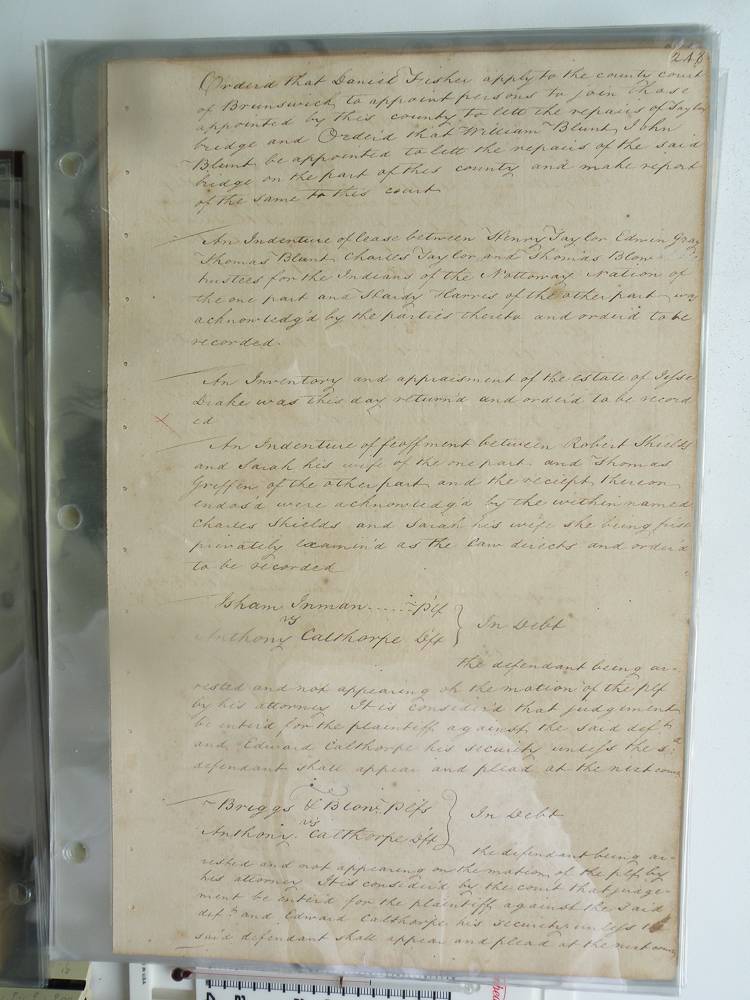 248
Orderd that Daniel Fisher apply to the county court
of Brunswick to appoint persons to join those
appointed by this county to lett the repairs of Taylors
bridge and Order'd that William Blunt, John
Blunt be appointed to lett the repairs of the said
bridge on the part of this county and make report
of the same to this court
An Indenture of lease between Henry Taylor Edwin Gray
Thomas Blunt Charles Taylor and Thomas Blow
trustees for the Indians of the Nottoway Nation of
the one part and Hardy Harris of the other part was
acknowledg'd by the parties thereto and order'd to be
recorded.
An Inventory and appraisment of the estate of Jesse
Drake was this day return'd and order'd to be record
ed
An Indenture of feoffment between Robert Shields
and Sarah his wife of the one part and Thomas
Griffen of the other part and the reciept thereon
endos'd were acknowledg'd by the within named
Charles Shields and Sarah his wife she being first
privately examin'd as the law directs and order'd
to be recorded
Isham Inman Plf
vs
Anthony Calthorpe Dft
In Debt
the defendant being ar-
rested and not appearing on the motion of the plf
by his attorney It is consider'd that judgement
be enter'd for the plaintiff against the said deft
and Edward Calthorpe his security unless the sd
defendant shall appear and plead at the next court
Briggs & Blow Plfs
vs
Anthony Calthorpe Dft
In Debt
the defendant being ar-
rested and not appearing on the motion of the plf by
his attorney It is consider'd by the court that judge-
ment be enter'd for the plaintiff against the said
deft and Edward Calthorpe his security unless the
said defendant shall appear and plead at the next court